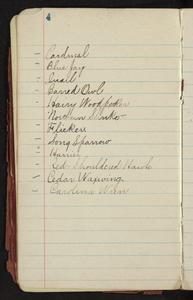 4
Cardinal
Blue Jay
Quail
Barred Owl
Hairy Woodpecker
Northern Junko
Flicker
Song Sparrow
Harrier
Red-Shouldered Hawk
Cedar Waxwing
Carolina Wren